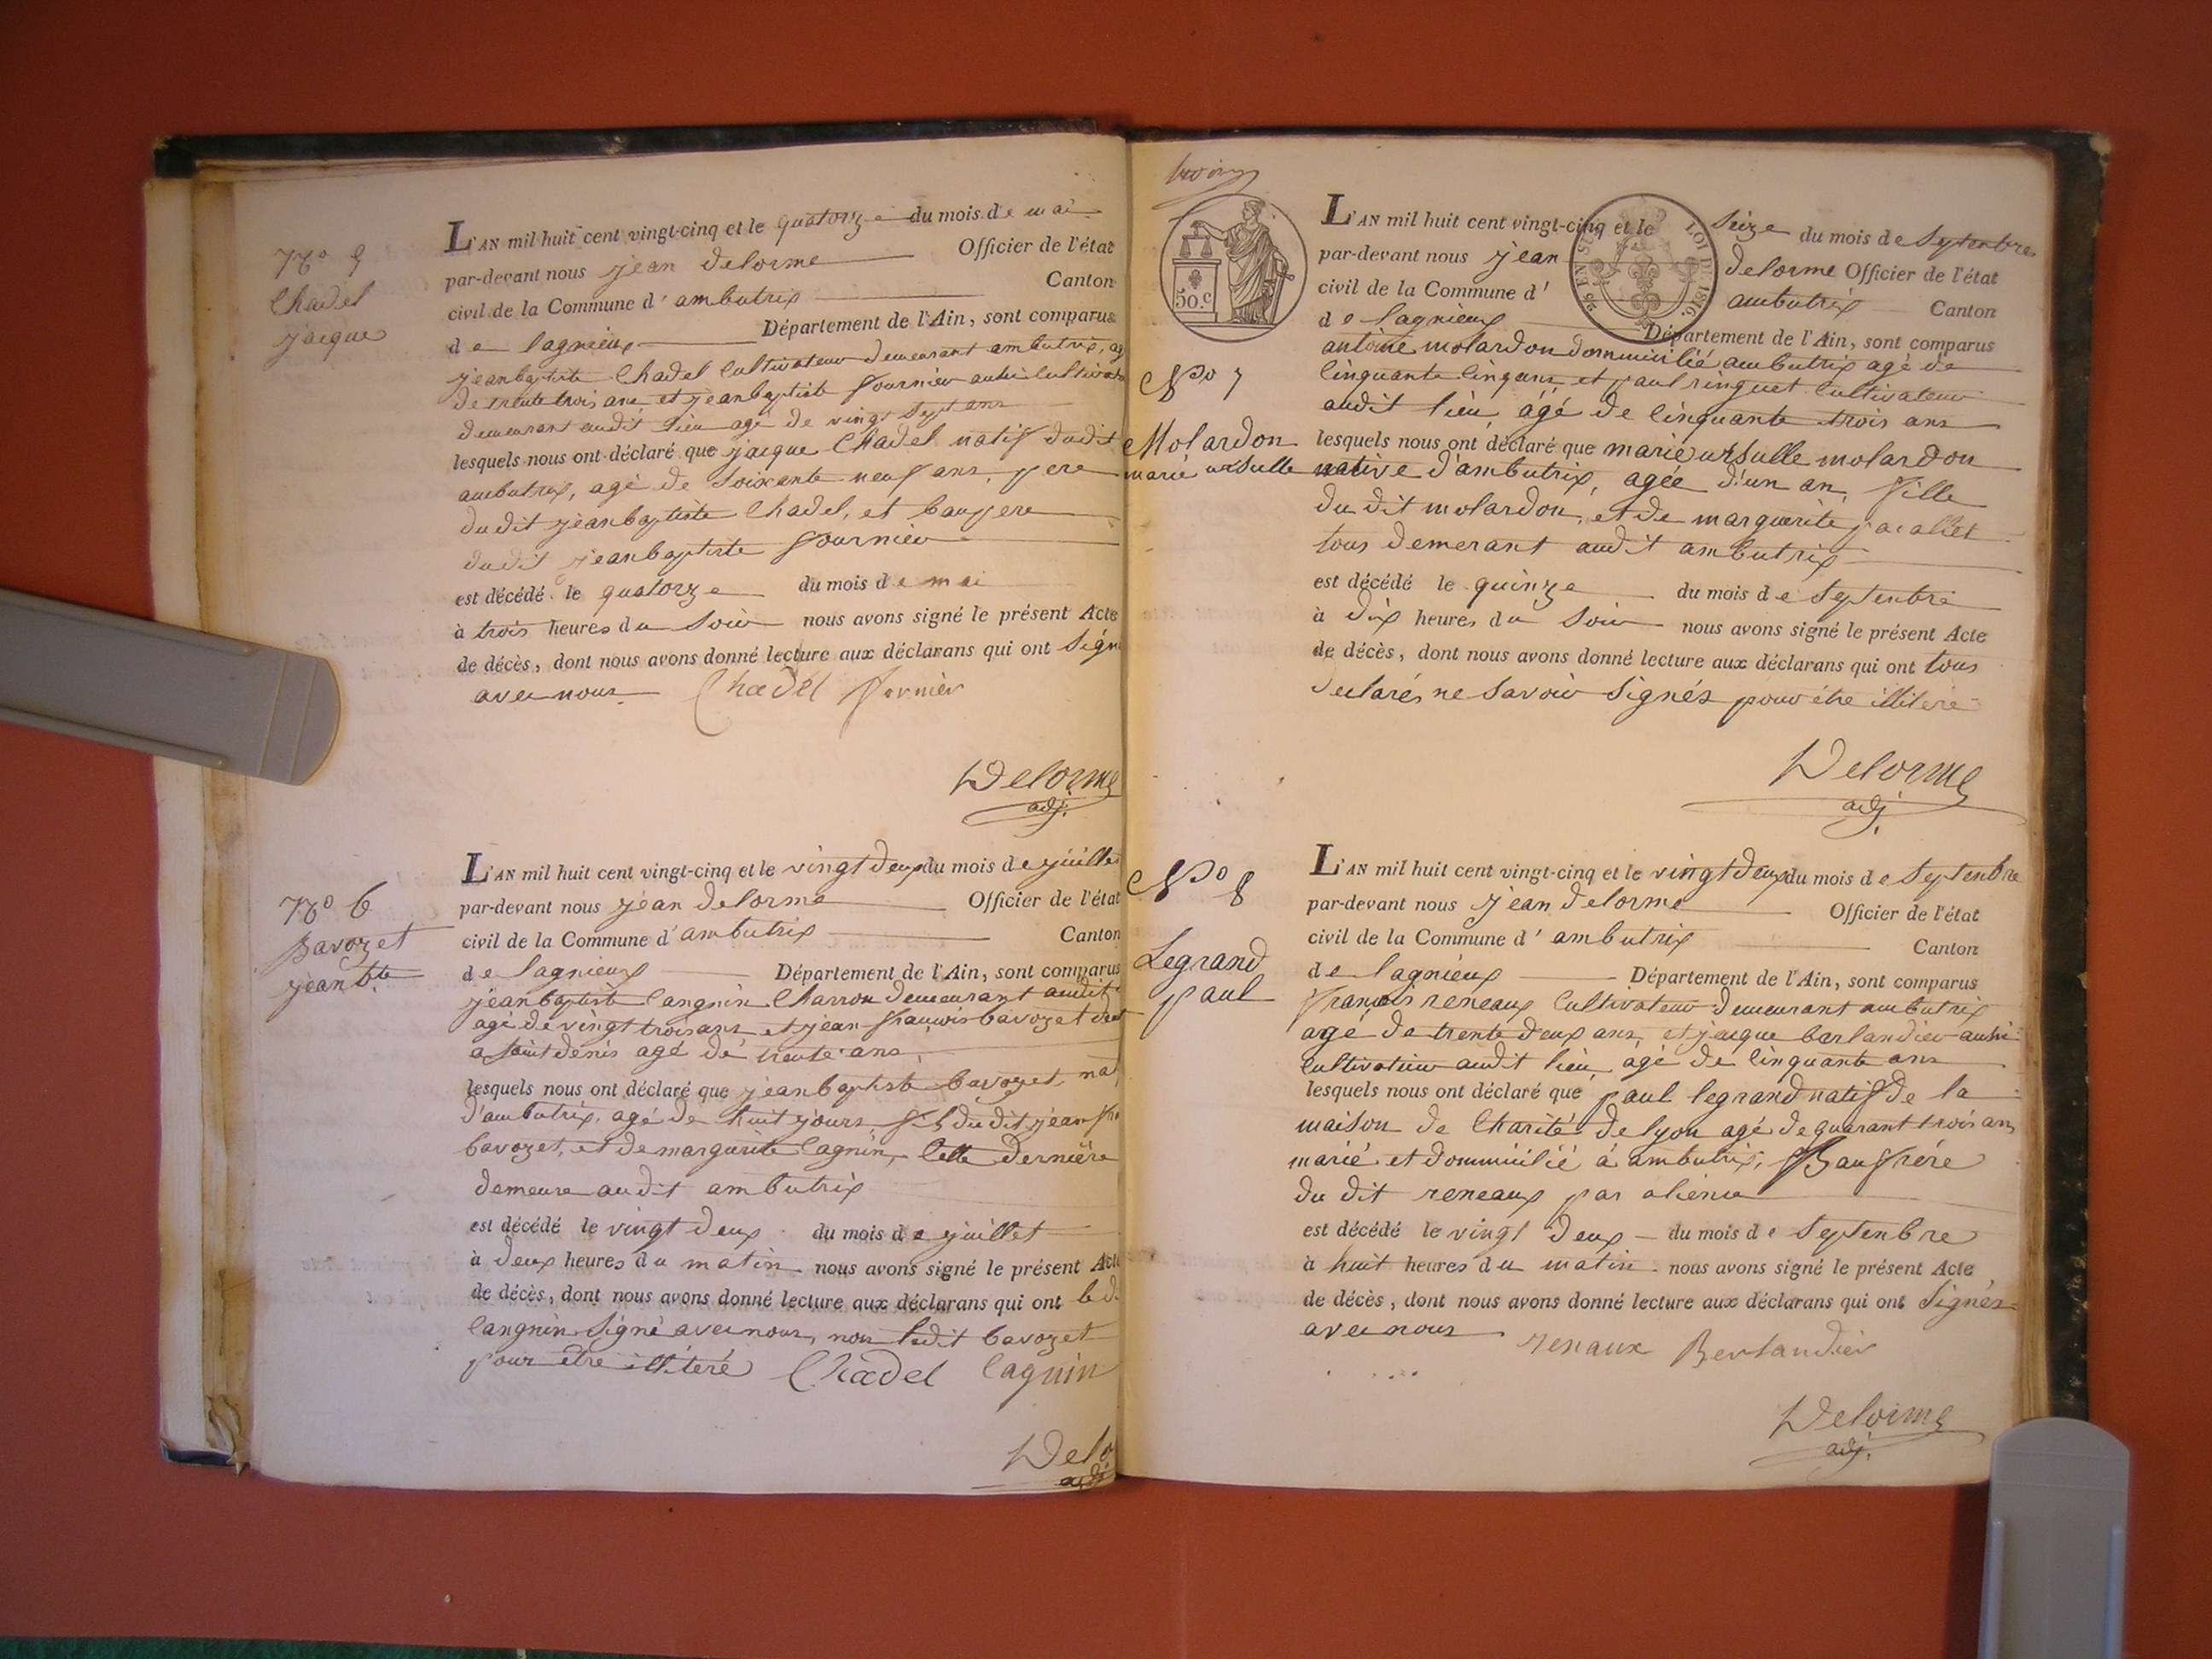 N.° 5
Chadel
jacque
L'AN mil huit cent vingt-cinq et le quatorze du mois de mai
par-devant nous jean delorme Officier de l'état
civil de la Commune d'ambutrix Canton
de lagnieux Département de l'Ain, sont comparus
jeanbaptiste Chadel Cultivateur demeurant ambutrix, ag
de trente trois ans et jeanbaptiste fournier aussi Cultivat
demeurant audit lieu agé de vingt sept ans
lesquels nous ont déclaré que jacque Chadel natif dudit
ambutrix, agé de Soixante neuf ans, pere
dudit jeanbaptiste Chadel, et baupere
dudit jeanbaptiste fournier
est décédé le quatorze du mois de mai
à trois heures du Soir nous avons signé le présent Acte
de décès, dont nous avons donné lecture aux déclarans qui ont Sign
avec nous Chadel fornier
Delorme
adj.
N.° 6
Bavozet
jean bte
L'AN mil huit cent vingt-cinq et le vingt deux du mois de juillet
par-devant nous jean delorme Officier de l'état
civil de la Commune d'ambutrix Canton
de lagnieux Département de l'Ain, sont comparus
jeanbaptiste Cangnin Charron demeurant audit
agé de vingt trois ans et jean francois bavozet
a saint denis agé de trente ans
lesquels nous ont déclaré que jeanbaptiste bavozet, nat
d'ambutrix, agé de huit jours, fils du dit jean
bavozet, et de marguerite Cagnin, Cette dernière
demeure audit ambutrix
est décédé le vingt deux du mois de juillet
à deux heures du matin nous avons signé le présent Acte
de décès, dont nous avons donné lecture aux déclarans qui ont led.
Cangnin Signé avec nous, non ledit bavozet
pour être illiteré Chadel Cagnin
Delo
adj
50.C
EN SUS
LOI DE 1816.
N.° 7
Molardon
marie ursulle
L'AN mil huit cent vingt-cinq et le Seize du mois de Septenbre
par-devant nous jean delorme Officier de l'état
civil de la Commune d' ambutrix Canton
de lagnieux Département de l'Ain, sont comparus
antoine molardon dommicilié ambutrix agé de
Cinquante Cinq ans et paul ringuet Cultivateur
audit lieu, âgé de Cinquante trois ans
lesquels nous ont déclaré que marie ursulle molardon
native d'ambutrix, agée d'un an, fille
du dit molardon, et de marguerite jacallet
tous demerant audit ambutrix
est décédé le quinze du mois de Septenbre
à dix heures du Soir nous avons signé le présent Acte
de décès, dont nous avons donné lecture aux déclarans qui ont tous
declarés ne Savoir Signés pour être illiteré
Delorme
adj.
N.° 8
Legrand
paul
L'AN mil huit cent vingt-cinq et le vingt deux du mois de Septenbre
par-devant nous jean delorme Officier de l'état
civil de la Commune d' ambutrix Canton
de lagnieux Département de l'Ain, sont comparus
francois reneaux Cultivateur demeurant ambutrix
agé de trente deux ans, et jacque barlandier aussi
Cultivateur audit lieu, agé de Cinquante ans
lesquels nous ont déclaré que paul legrand natif de la
maison de Charité de lyon agé de quarant trois ans
marié et dommicilié à ambutrix, Baufrére
du dit reneaux par alience
est décédé le vingt deux du mois de Septenbre
à huit heures du matin nous avons signé le présent Acte
de décès, dont nous avons donné lecture aux déclarans qui ont Signés
avec nous renaux Berlandier
Delorme
adj.